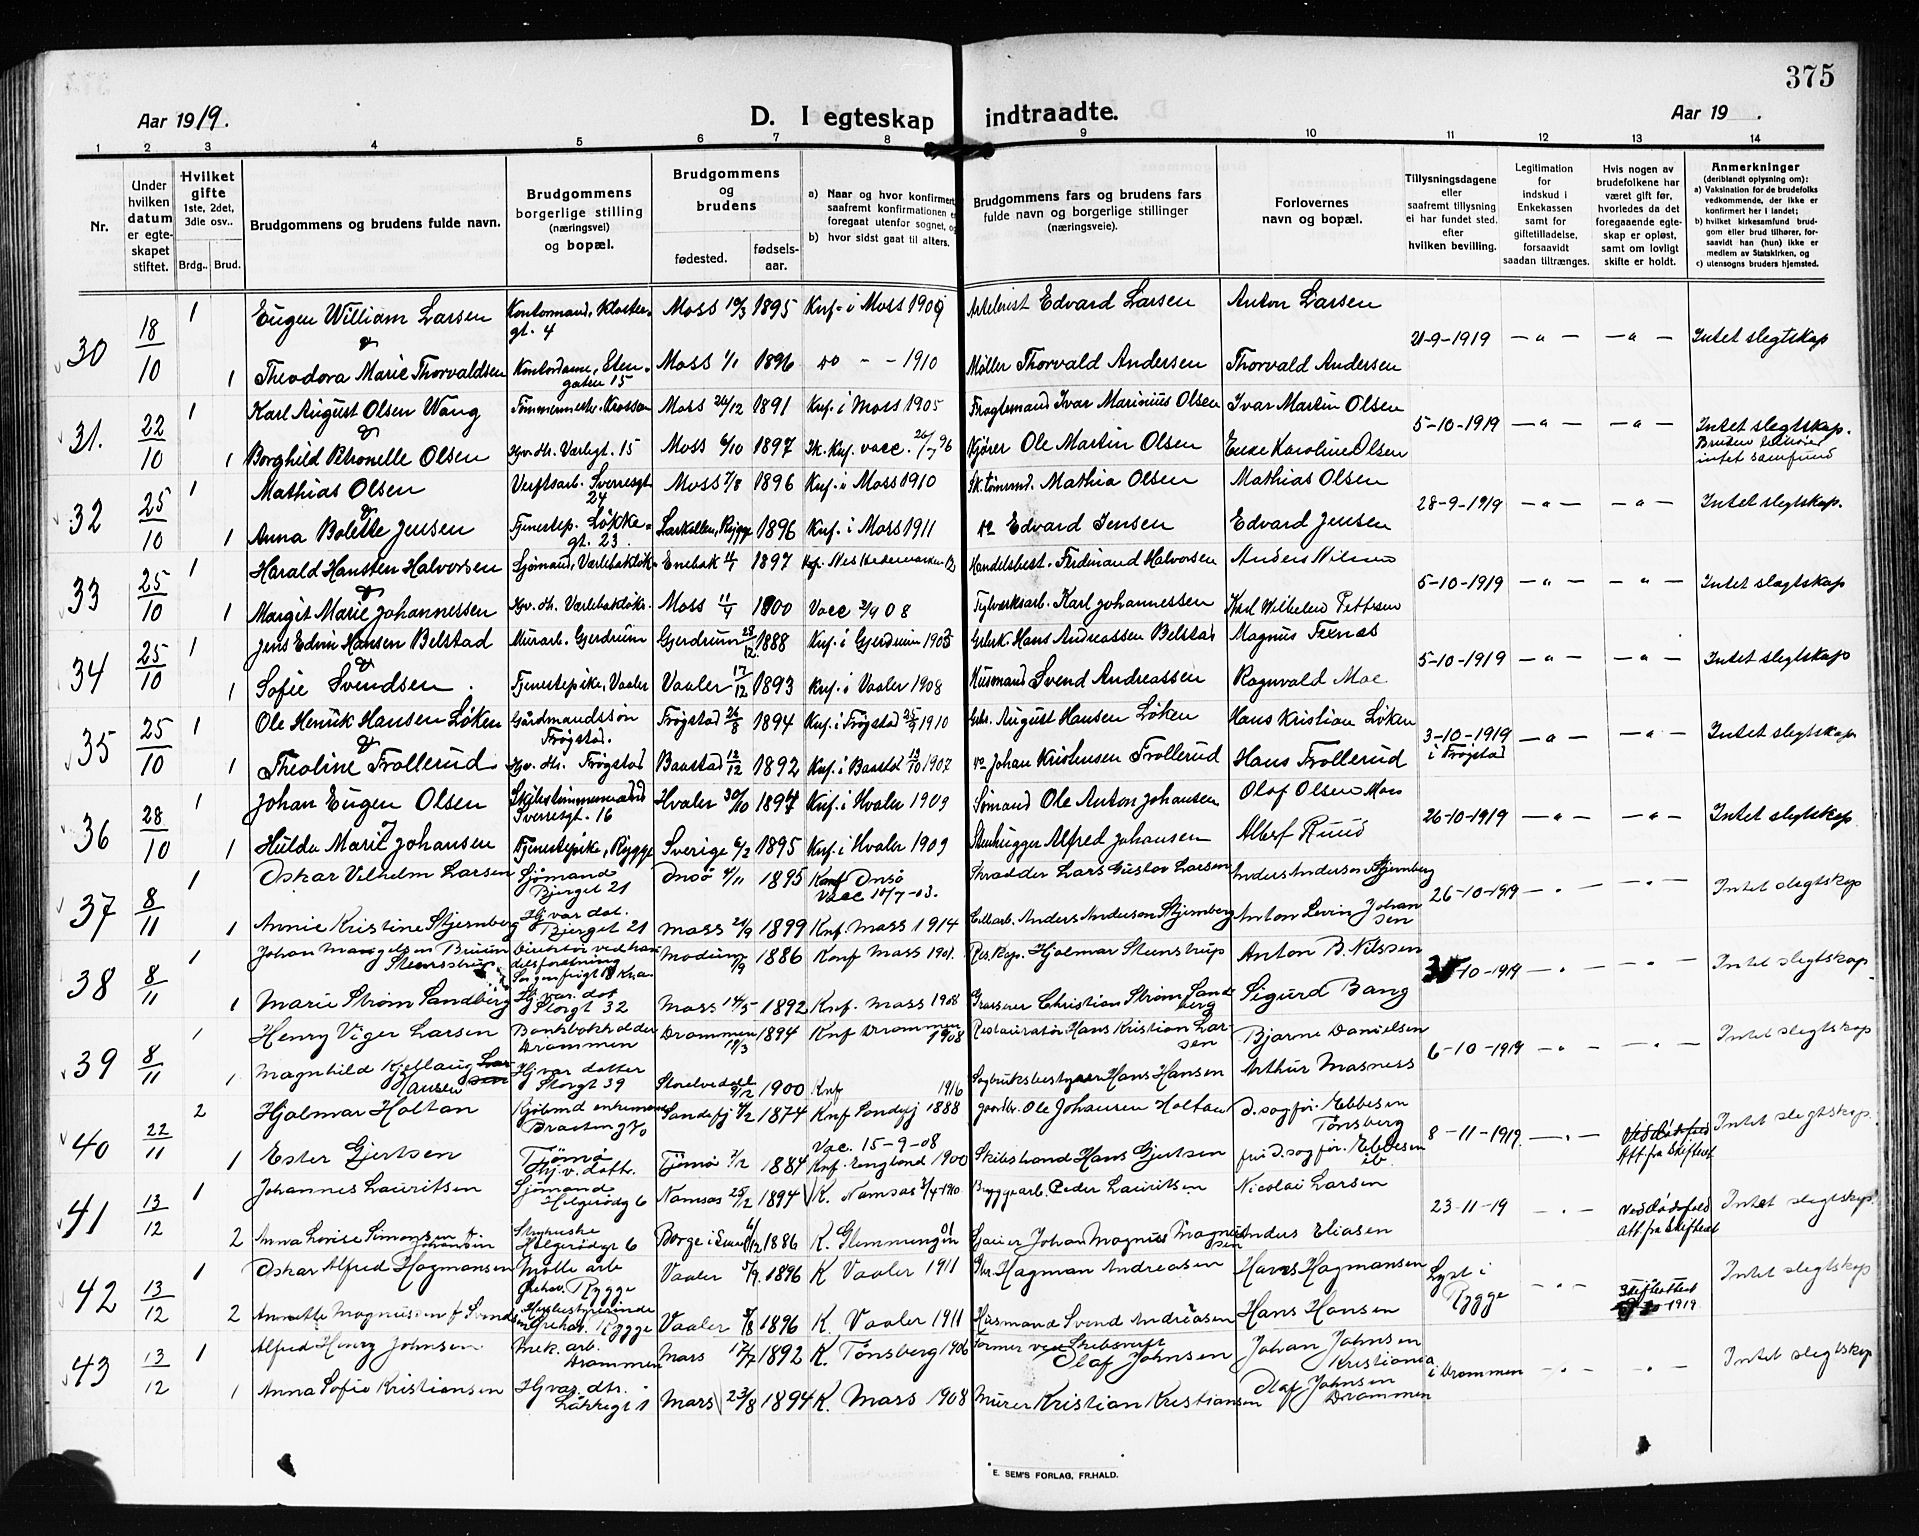 375
Aar 1919.
D. I egteskap indtraadte.
Aar 19 .
1 2 3 4 5 6 7 8 9 10 11 12 13 14
Nr.
Under hvilken datum er egteskapet stiftet.
Hvilket gifte 1ste, 2det, 3die osv..
Brdg.. Brud.
Brudgommens og brudens fulde navn.
Brudgommens borgerlige stilling (næringsvei) og bopæl.
Brudgommens og brudens
fødested. fødselsaar.
a) Naar og hvor konfirmert, saafremt konfirmationen er foregaat utenfor sognet, og
b) hvor sidst gaat til alters.
Brudgommens fars og brudens fars fulde navn og borgerlige stillinger (næringsveie).
Forlovernes navn og bopæl.
Tillysningsdagene eller saafremt tillysning ei har fundet sted. efter hvilken bevilling.
Legitimation for indskud i Enkekassen samt for giftetilladelse, forsaavidt saadan tiltrænges.
Hvis nogen av brudefolkene har været gift før, hvorledes da det foregaaende egteskap er opløst, samt om lovligt skifte er holdt.
Anmerkninger (deriblandt oplysning om):
a) Vaksination for de brudefolks vedkommende, der ikke er konfirmert her i landet;
b) hvilket kirkesamfund brudgom eller brud tilhører, forsaavidt han (hun) ikke er medlem av Statskirken, og
c) utensogns bruders hjemsted.
30 18/10 1 Eugen William Larsen Kontormand, Klostergt. 4 Moss 10/3 1895 Knf. i Moss 1909 Edvard Larsen Anton Larsen 21-9-1919 — " — — " — Intet slegtskap
& 1 Theodora Marie Thorvaldsen Kontordame, Stengaten 15 Moss 1/1 1896 do - - 1910 Møller Thorvald Andersen Thorvald Andersen
31. 22/10 1 Karl August Olsen Wang Tømmermester, Krossen Moss 26/12 1891 Knf. i Moss 1905 Fragtemand Ivar Marinius Olsen Ivar Martin Olsen 5-10-1919 — " — — " — Intet slegtskap.
& 1 Borghild Petronelle Olsen Hv. dt. Varlegt. 15 Moss 6/10 1897 Ik. Knf. vacc. 26/7 96 Kjører Ole Martin Olsen Enke Karoline Olsen Bruden tilhører intet samfund
32 25/10 1 Mathias Olsen Verftsarb. Sverresgt. 24 Moss 7/8 1896 Knf. i Moss 1910 Sk. tømmd. Mathia Olsen Mathias Olsen 28-9-1919 — " — — " — Intet slegtskap.
& 1 Anna Bolette Jensen Tjenestep. Løkkegt. 23 Larkollen, Rygge 1896 Knf. i Moss 1911 do Edvard Jensen Edvard Jensen
33 25/10 1 Harald Hansten Halvorsen Sjømand, Værlebakløk. Enebak 1897 Kf. Nes Hedemarken 12 Handelsbest. Ferdinand Halvorsen Anders Nilsen 5-10-1919 — " — — " — Intet slegtskap
& 1 Margit Marie Johannessen Hv. dt. Værlebakløk. Moss 11/4 1900 Vacc 2/9 08 Karl Johannessen Karl Wilhelm Pettersen
34 25/10 1 Jens Edvin Hansen Belstad Murarb. Gjerdrum Gjerdrum 28/12 1888 Knf. i Gjerdrum 1903 Hans Andreassen Belstad Magnus 5-10-1919 — " — — " — Intet slegtskap
& 1 Sofie Svendsen. Tjenestepike, Vaaler Vaaler 17/12 1893 Knf. i Vaaler 1908 Husmand Svend Andreassen Ragnvald Moe
35 25/10 1 Ole Henrik Hansen Løken Gårdmandssøn Trøgstad. Trøgstad 26/8 1894 Knf. i Trøgstad 25/9 1910 Gbr. August Hansen Løken Hans Kristian Løken 3-10-1919 i Trøgstad — " — — " — Intet slegtskap
& 1 Theoline Trollerud Hv. dt. Trøgstad Baastad 12/12 1892 Knf. i Baastd 13/10 1907 do Johan Kristensen Trollerud Hans Trollerud
36 28/10 1 Johan Eugen Olsen Skibstømmermand Sverresgt. 16 Hvaler 30/10 1894 Knf. i Hvaler 1909 Sømand Ole Anton Johansen Olaf Olsen Moss 26-10-1919 — " — — " — Intet slegtskap
1 Hulda Marie Johansen Tjenestepike, Rygge Sverige 6/2 1895 Knf. i Hvaler 1909 Stenhugger Alfred Johansen Albert Ruud
37 8/11 1 Oskar Vilhelm Larsen Sjømand Bjerget 21 Onsø 4/11 1895 Konf Onsø Vacc 10/7-03. Skrædder Lars Gustav Larsen Anders Anderson Stjernberg 26-10-1919 — " — — " — Intet slegtskap
1 Annie Kristine Stjernberg Hj var. dat. Bjerget 21 Moss 21/9 1899 Knf. Moss 1914 Anders Anderson Stjernberg Anton Levin Johansen
38 8/11 1 Johan Mangelsen Bruun Steenstrup Direktør ved handelsforetning Sorgenfrigt 18 Kr.a. Modum 1/9 1886 Konf Moss 1901. Res. kap. Hjalmar Steenstrup Anton B. Nilssen -10-1919 — " — — " — Intet slegtskap
1 Marie Strøm Sandberg Hj. var. dat Storgt 32 Moss 14/5 1892 Knf. Moss 1908 Grosserer Christian Strøm Sandberg Sigurd Bang
39 8/11 1 Henry Viger Larsen Bankbokholder Drammen Drammen 18/3 1894 Knf Drammen 1908 Restauratør Hans Kristian Larsen Bjarne Danielsen 6-10-1919 — " — — " — Intet slegtskap
1 Magnhild Kjellaug Larsen Hansen Hj var datter Storgt 39 Storelvedal 9/2 1900 Knf 1916 Sagbruksbestyrer Hans Hansen Arthur Masness
40 22/11 2 Hjalmar Holtan Kjøbmd enkemand Sandefj 4/2 1874 Knf Sandefj 1888 gaardbr. Ole Johansen Holtan O. sagfør. Ebbesen Tønsberg 8-11-1919. — " — Ved dødsfald Att fra skifteret Intet slegtskap.
1 Ester Gjertsen Tjømø Hj. v. datt. Tjømø 7/2 1884 Vac. 15-9-08 Knf. England 1900 Hans Gjertsen fru O. sagfør. Ebbesen ib.
41 13/12 1 Johannes Lauritsen Sjømand Helgerødg 6 Namsos 25/2 1894 K. Namsos 3/4 1910 Bryggearb. Peder Lauritsen Nicolai Larsen 23-11-19 — " — Ved dødsfald att fra skifteret Intet slegtskap
2 Anna Lovise Simonsen f. Johansen Helgerødgt 6 1886 K. Glemmingen 01 Johan Magnus Magnussen Anders Eliasen
42 13/12 1 Oskar Alfred Hagmansen Mølle arb Rygge Vaaler 5/9. 1896 K Vaaler 1911 Gbr. Hagman Andreasen Hans Hagmansen Lyst i Rygge — " — Skifteattest 1919 Intet slegtskap
2 Annette Magnussen f. Svendsen Husbestyrerinde Rygge Vaaler 3/8 1896 K. Vaaler 1911 Husmand Svend Andreasen Hans Hansen
43 13/12 1 Alfred Henry Johnsen Mek. arb. Drammen Moss 17/7 1892 K. Tønsberg 1906 Former ved Skibsverft Olaf Johnsen Johan Johnsen Kristiania i Drammen — " — — " — Intet slegtskap
1 Anna Sofie Kristiansen Hj var. dtr. Løkkegt 1 Moss 23/8 1894 K. Moss 1908 Murer Kristian Kristiansen Olaf Johnsen Drammen
E. SEM'S FORLAG, FR.HALD.